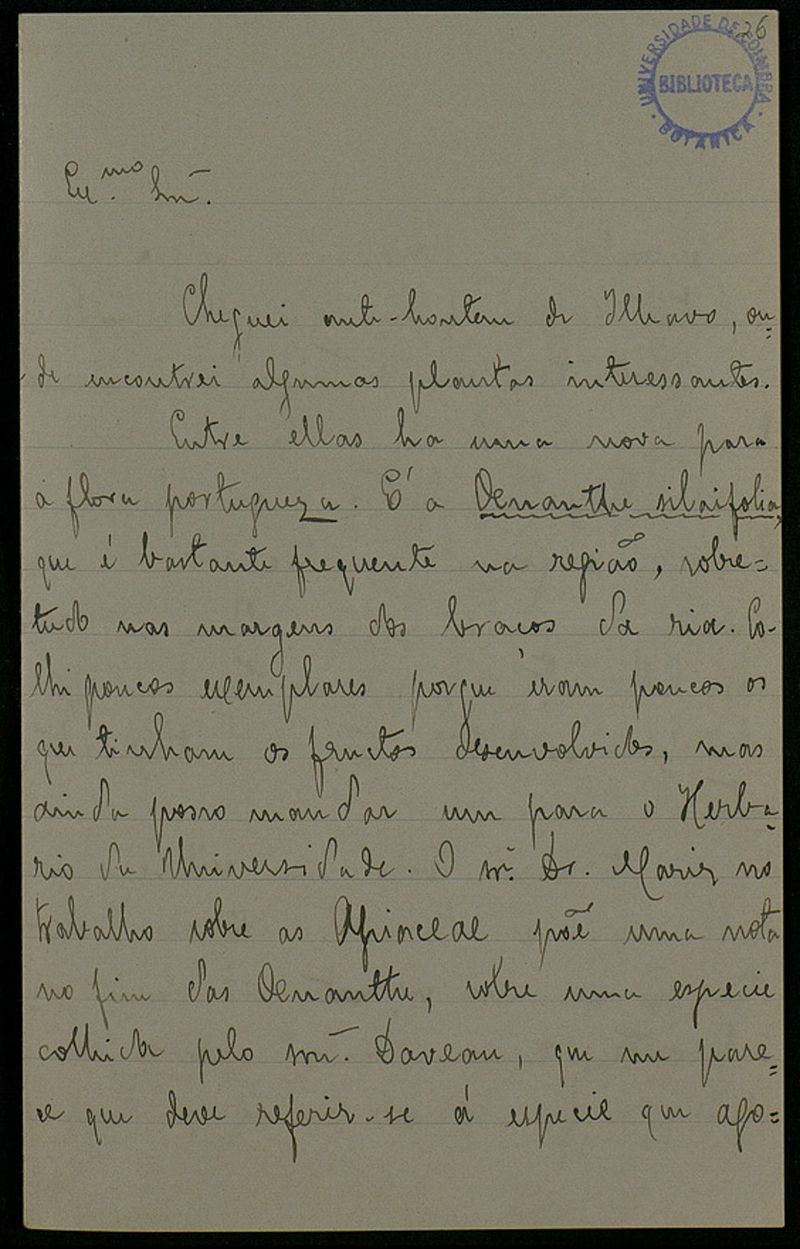 26
UNIVERSIDADE DE COIMBRA
BIBLIOTECA
BOTANICA
Ex.mo Snr.
Cheguei ante-hontem de Ilhavo, on=
de encontrei algumas plantas interessantes.
Entre ellas ha uma nova para
a flora portugueza. É a Oenanthe silaifolia,
que é bastante frequente na região, sobre=
tudo nas margens dos braços da ria. Co-
lhi poucos exemplares porque eram poucos os
que tinham os fructos desenvolvidos, mas
ainda posso mandar um para o Herba=
rio da Universidade. O sr. Dr. Mariz no
trabalho sobre as Apiaceae põe uma nota
no fim das Oenanthe, sobre uma especie
colhida pelo snr. Daveau, que me pare=
ce que deve referir-se á especie que ago=